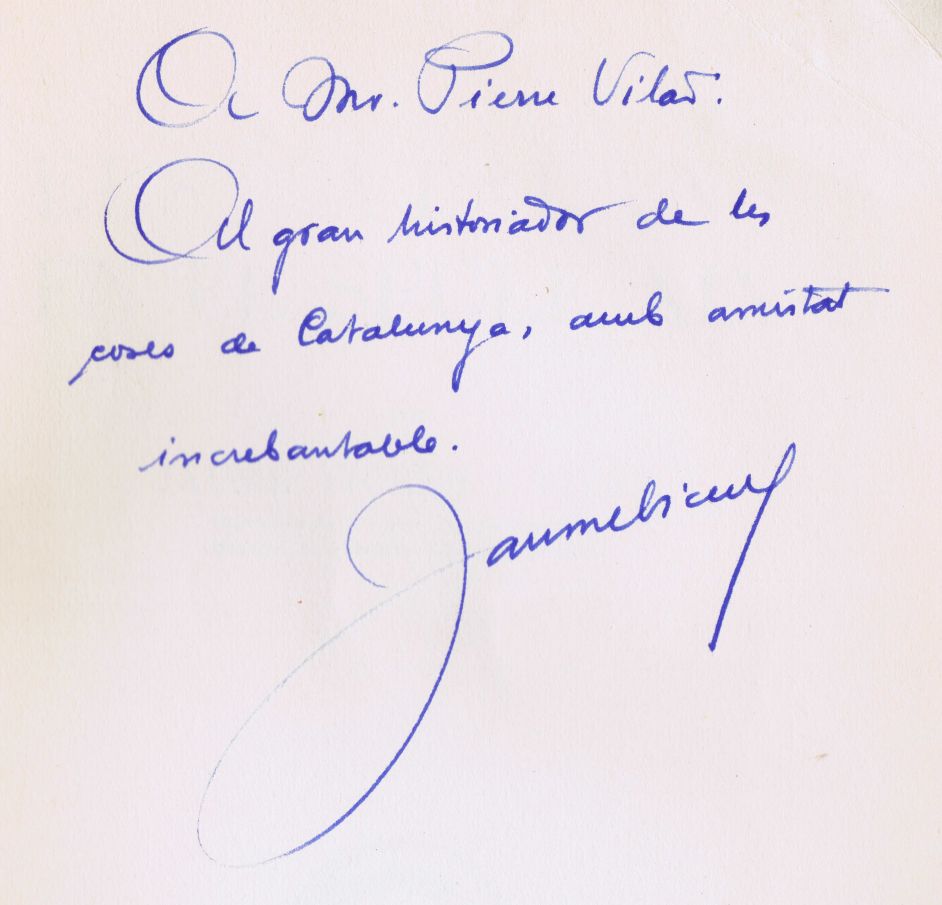 A Mr. Pierre Vilar.
Al gran historiador de les
coses de Catalunya, amb amistat
increbantable.
Jaume Vicens